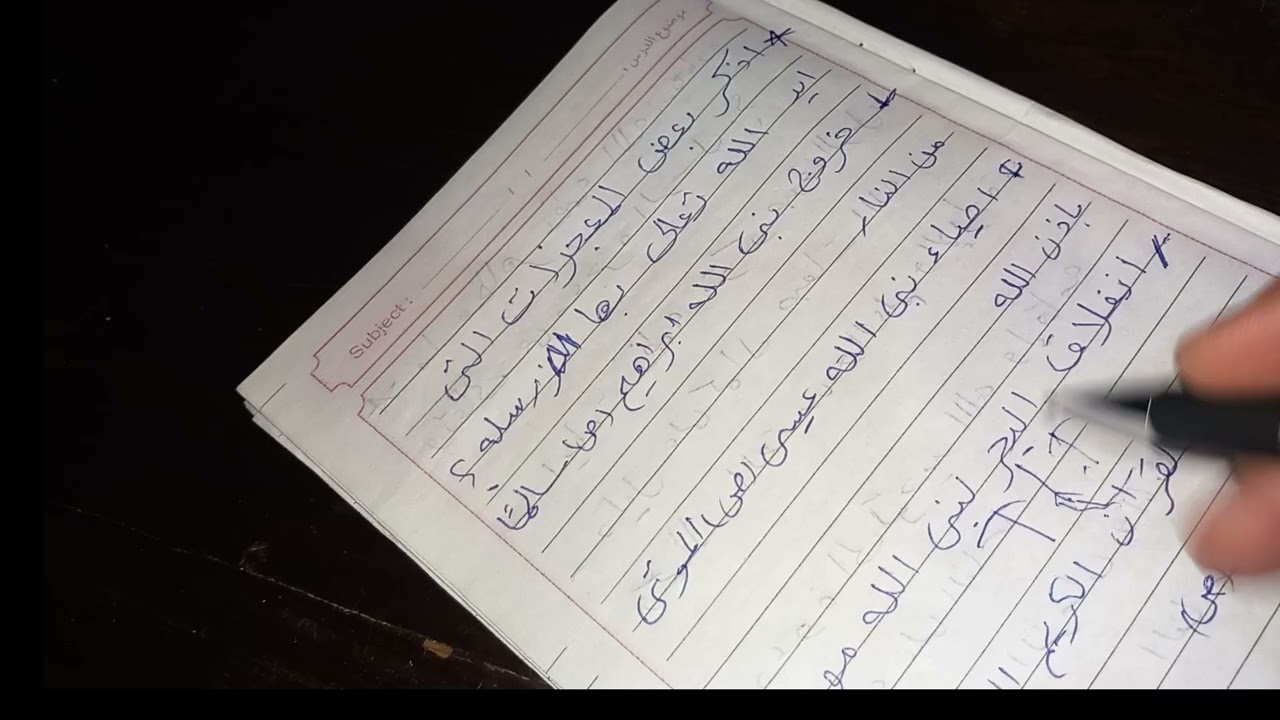 موضوع الدرس:
Subject:
* اذكر بعض المعجزات التي
ايد الله تعالى بها رسله؟
* خروج نبي الله ابراهيم (ص) سالمًا
من النار
* احياء نبي الله عيسى (ص) الموتى
باذن الله
* انفلاق البحر لنبي الله
الكريم
(ص)